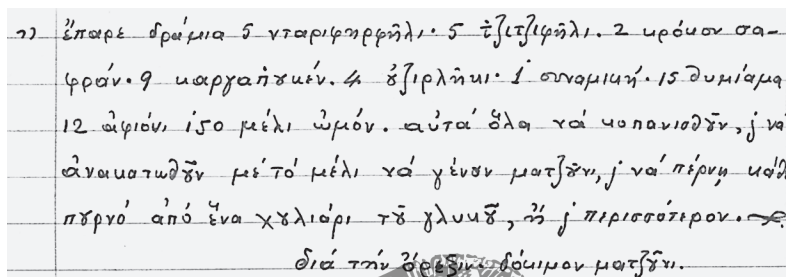 η) ἔπαρε δράμια 5 νταριφηρφῆλι· 5 τζιτζιφῆλι. 2 κρόκον σα-
φράν· 9 καργαπουκέν. 4 οὐζιρλῆκι· 1 συναμικήν. 15 θυμίαμα
12 ἀφιόν, 150 μέλι ὠμόν. αὐτά ὅλα νά κοπανισθοῦν, j νά
ἀνακατωθοῦν μέ τό μέλι νά γένουν ματζοῦνι, j νά πέρνῃ κάθε
πυρνό ἀπό ἕνα χουλιάρι τοῦ γλυκοῦ, ἤ j περισσότερον.
διά τήν ὄρεξιν· δόκιμον ματζοῦνι.